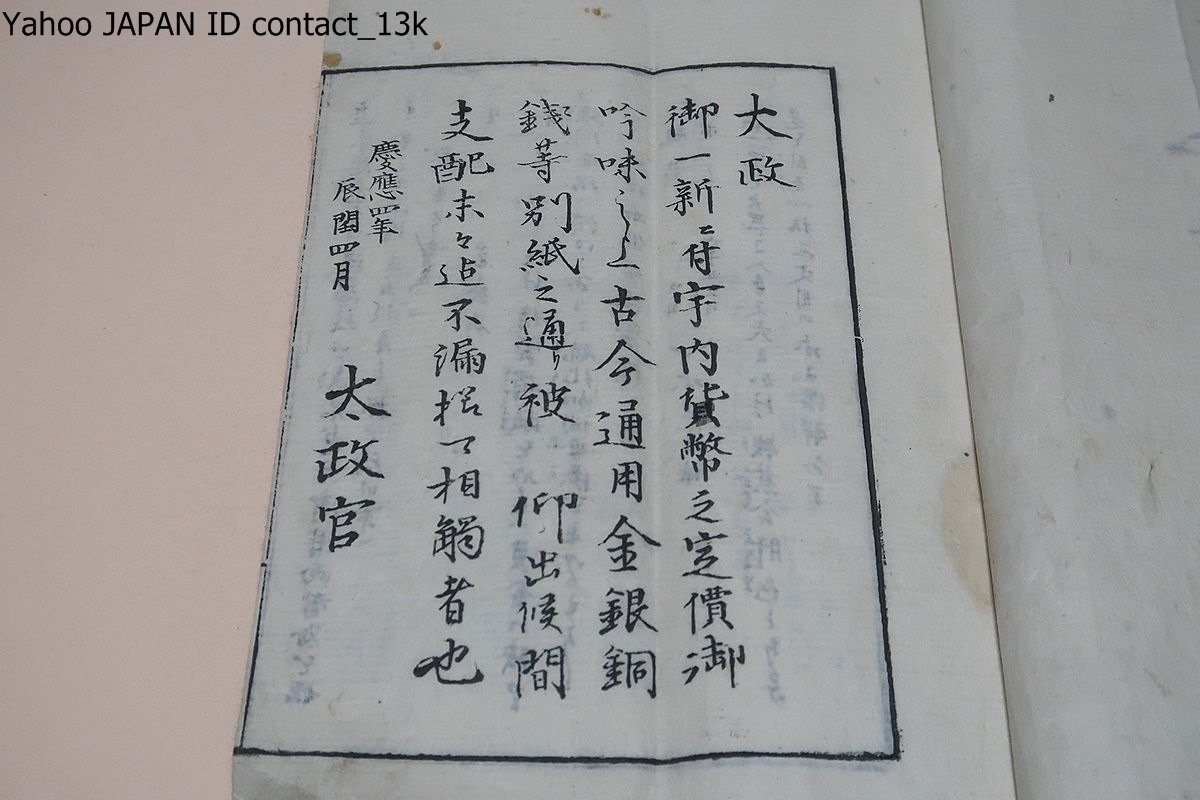 Yahoo JAPAN ID contact_13k
大政
御一新ニ付宇内貨幣之定價御
吟味之上古今通用金銀銅
錢等別紙之通り被 仰出候間
支配末々迠不漏様可相觸者也
慶應四年
辰閏四月
太政官